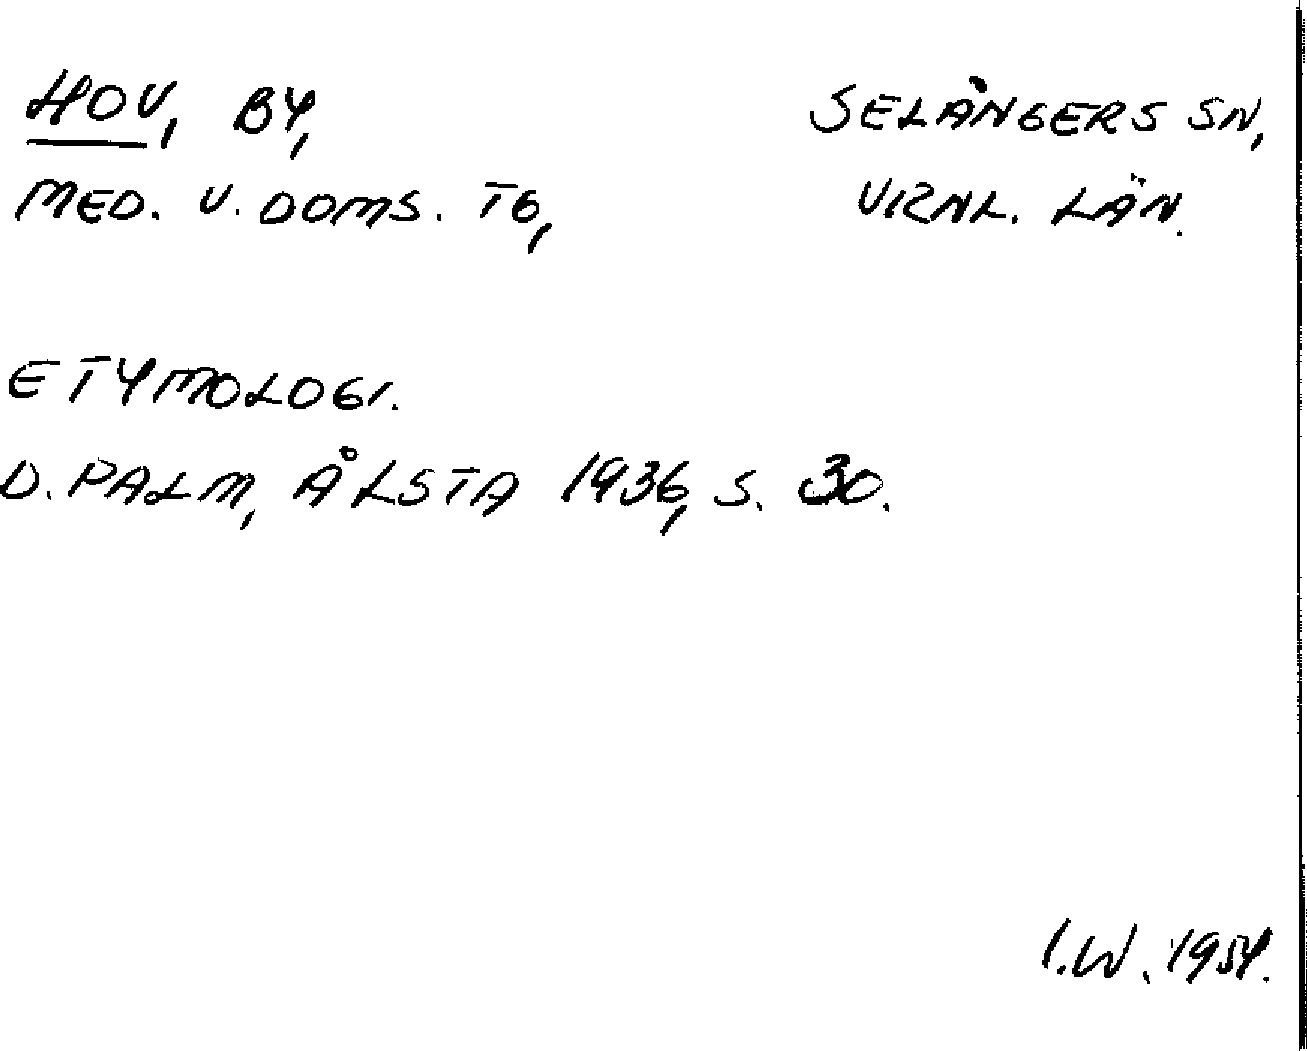 HOV, BY, SELÅNGERS SN,
MED. V. DOMS. TG, VRNL. LÄN.
ETYMOLOGI.
D. PALM, ÅLSTA 1936, S. 30.
I.W. 1954.